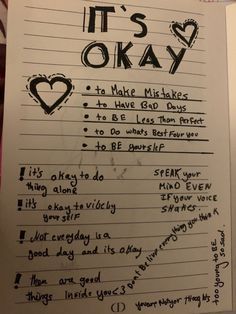 IT'S
OKAY
• to Make Mistakes
• to Have Bad Days
• to BE Less Than Perfect
• to Do whats Best Four you
• to BE YourselF
! it's okay to do
thing alone
! its okay to vibe by
your self
! Not everyday is a
good day and its okay
! there are good
things Inside you <3
SPEAK your
MIND EVEN
IF your VOICE
SHAKES.
Dont Believe everything you think
too young to BE
so sad!
youare Not your thoughts